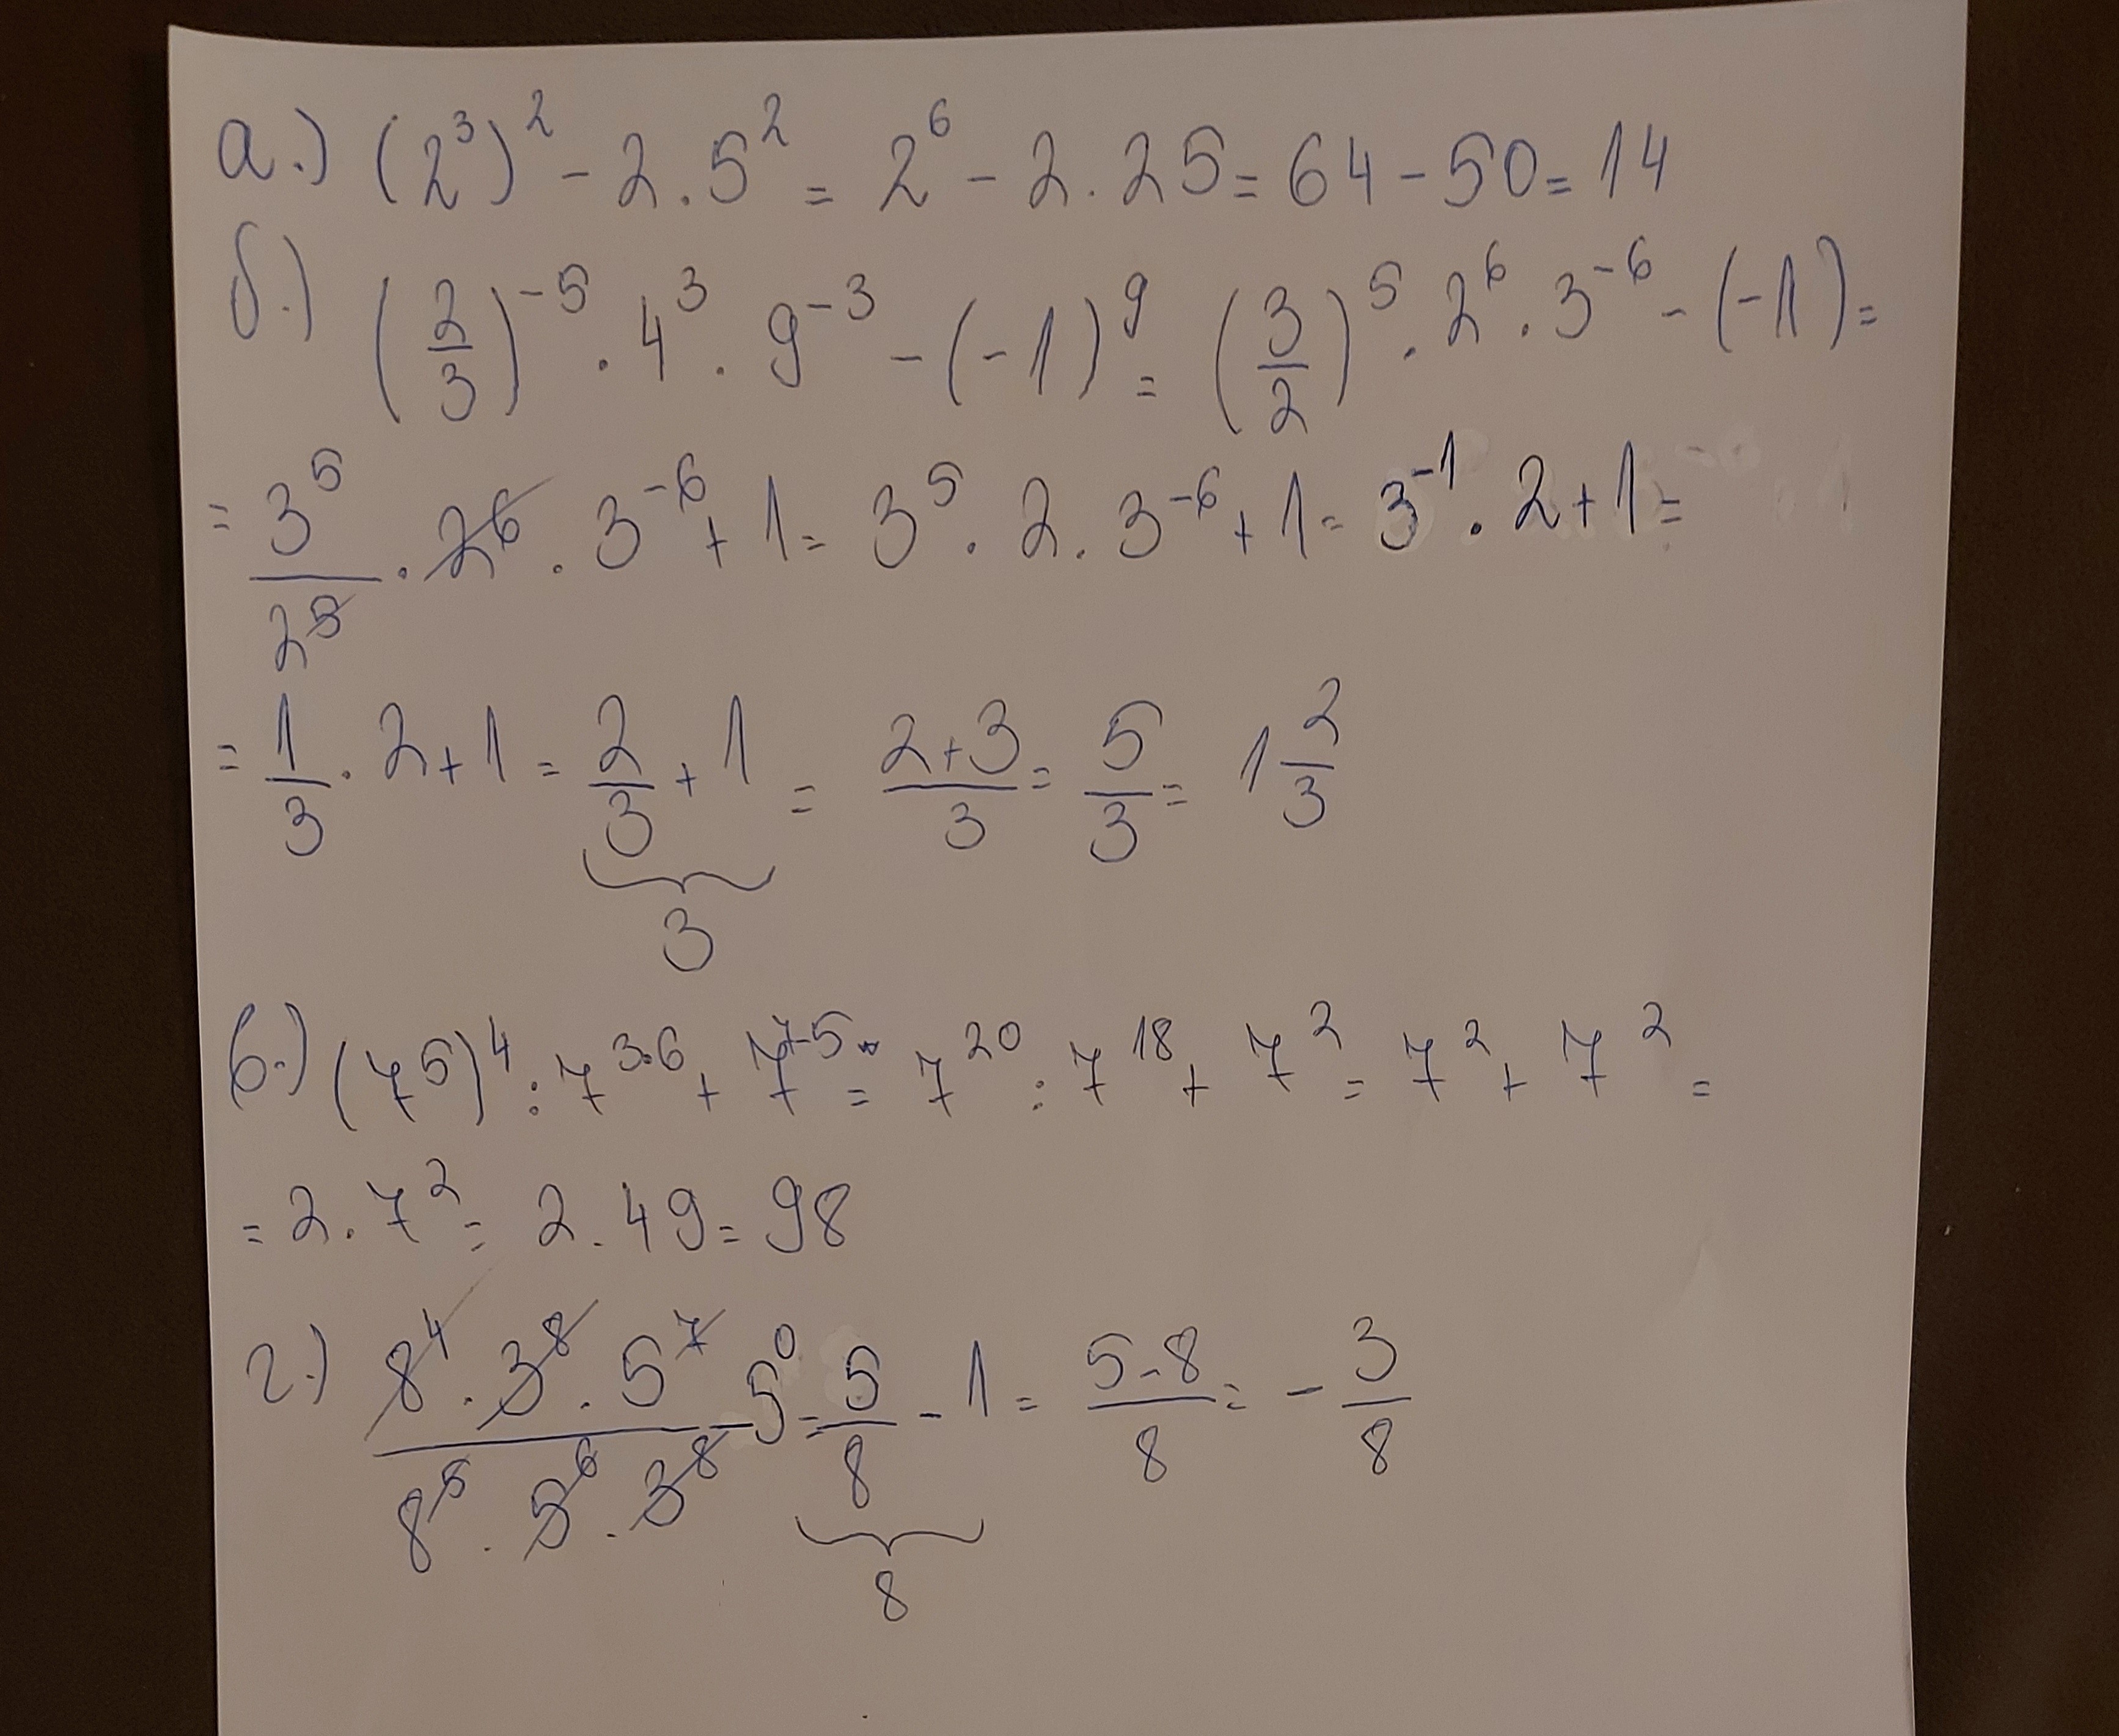 а.) (2³)² - 2.5² = 2⁶ - 2.25 = 64 - 50 = 14
б.) (2/3)⁻⁵ . 4³ . 9⁻³ - (-1)⁹ = (3/2)⁵ . 2⁶ . 3⁻⁶ - (-1) =
= 3⁵/2⁵ . 2⁶ . 3⁻⁶ + 1 = 3⁵ . 2 . 3⁻⁶ + 1 = 3⁻¹ . 2 + 1 =
= 1/3 . 2 + 1 = 2/3 + 1 = (2+3)/3 = 5/3 = 1 2/3
3
в.) (7⁵)⁴ : 7³·⁶ + 7⁷⁻⁵ = 7²⁰ : 7¹⁸ + 7² = 7² + 7² =
= 2.7² = 2.49 = 98
г.) (8⁴ . 3⁸ . 5⁷)/(8⁵ . 5⁶ . 3⁸) - 5⁰ = 5/8 - 1 = (5-8)/8 = - 3/8
8